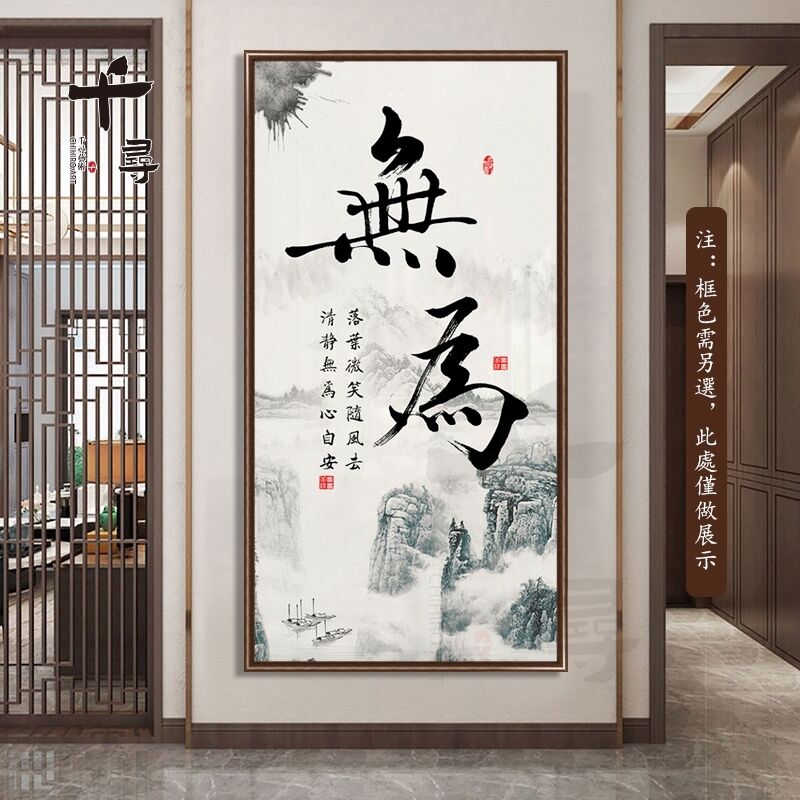 千尋
千尋藝術
無為
落葉微笑隨風去
清靜無爲心自安
注：框色需另選，此處僅做展示